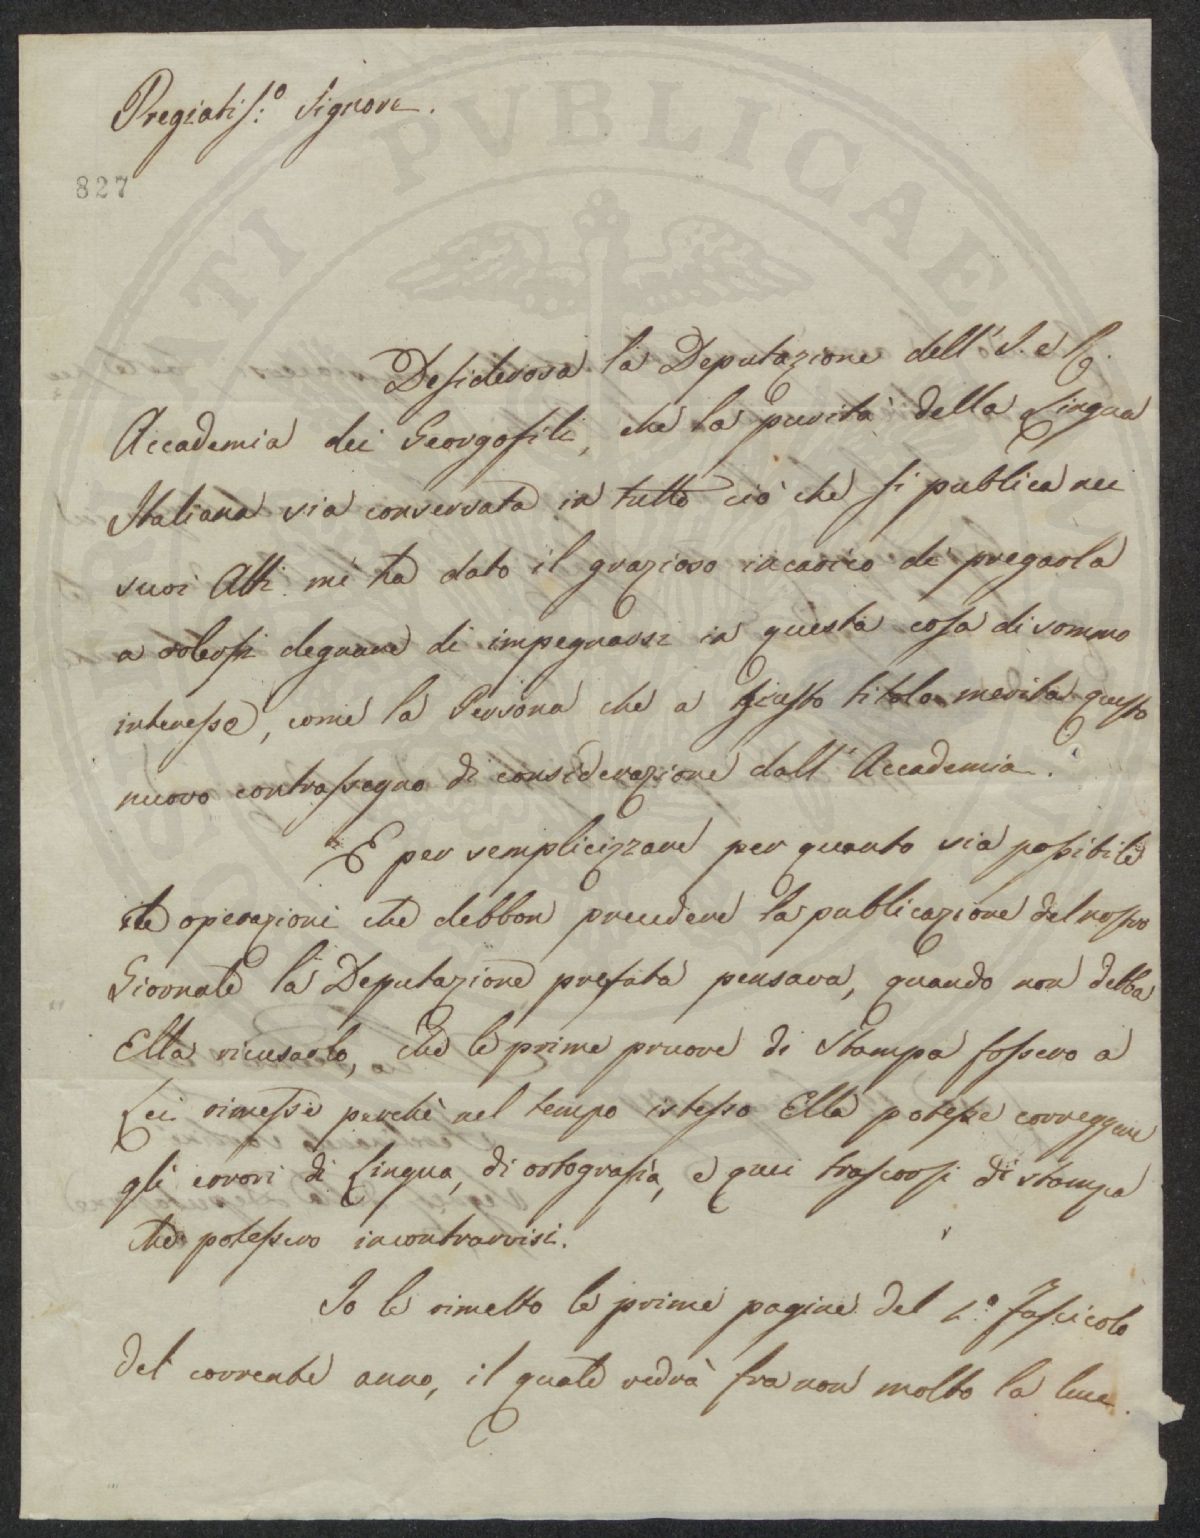 Pregiatis:º Signore.
827
Desiderosa la Deputazione dell' I. e R.
Accademia dei Georgofili, che la purità della Lingua
Italiana sia conservata in tutto ciò che si publica nei
suoi Atti mi ha dato il grazioso incarico di pregarla
a volersi degnare di impegnarsi in questa cosa di sommo
interesse, come la Persona che a giusto titolo merita questo
nuovo contrassegno di considerazione dall' Accademia.
E per semplicizzare per quanto sia possibile
le operazioni che debbon precedere la publicazione del nostro
Giornale la Deputazione prefata pensava, quando non debba
Ella ricusarlo, che le prime pruove di Stampa fossero a
Lei rimesse perchè nel tempo istesso Ella potesse correggere
gli errori di Lingua, di ortografia, e quei trascorsi di stampa
che potessero incontrarvisi.
Io le rimetto le prime pagine del º fascicolo
del corrente anno, il quale vedrà fra non molto la luce.
PVBLICAE